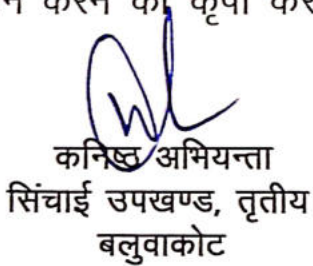 करने की कृपा कर
कनिष्ठ अभियन्ता
सिंचाई उपखण्ड, तृतीय
बलुवाकोट